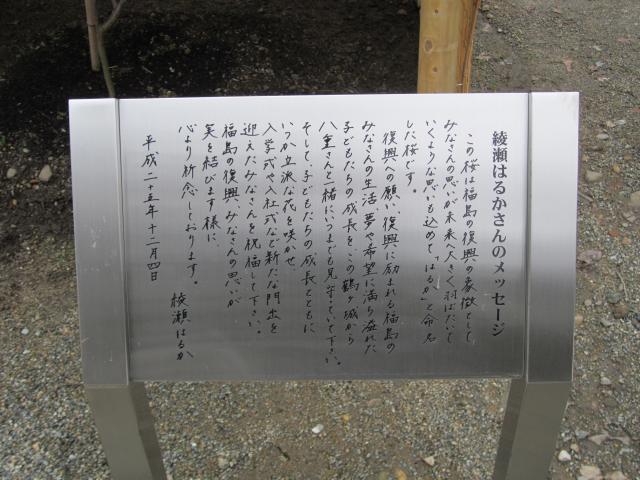 綾瀬はるかさんのメッセージ
この桜は福島の復興の象徴として、
みなさんの思いが未来へ大きく羽ばたいて
いくような思いも込めて「はるか」と命名
した桜です。
復興への願い、復興に励まれる福島の
みなさんの生活、夢や希望に満ち溢れた
子どもたちの成長を、この鶴ヶ城から
八重さんと一緒にいつまでも見守っていて下さい。
そして、子どもたちの成長とともに
いつか立派な花を咲かせ、
入学式や入社式など新たな門出を
迎えたみなさんを祝福して下さい。
福島の復興、みなさんの思いが
実を結びます様に、
心より祈念しております。
平成二十五年十二月四日
綾瀬はるか